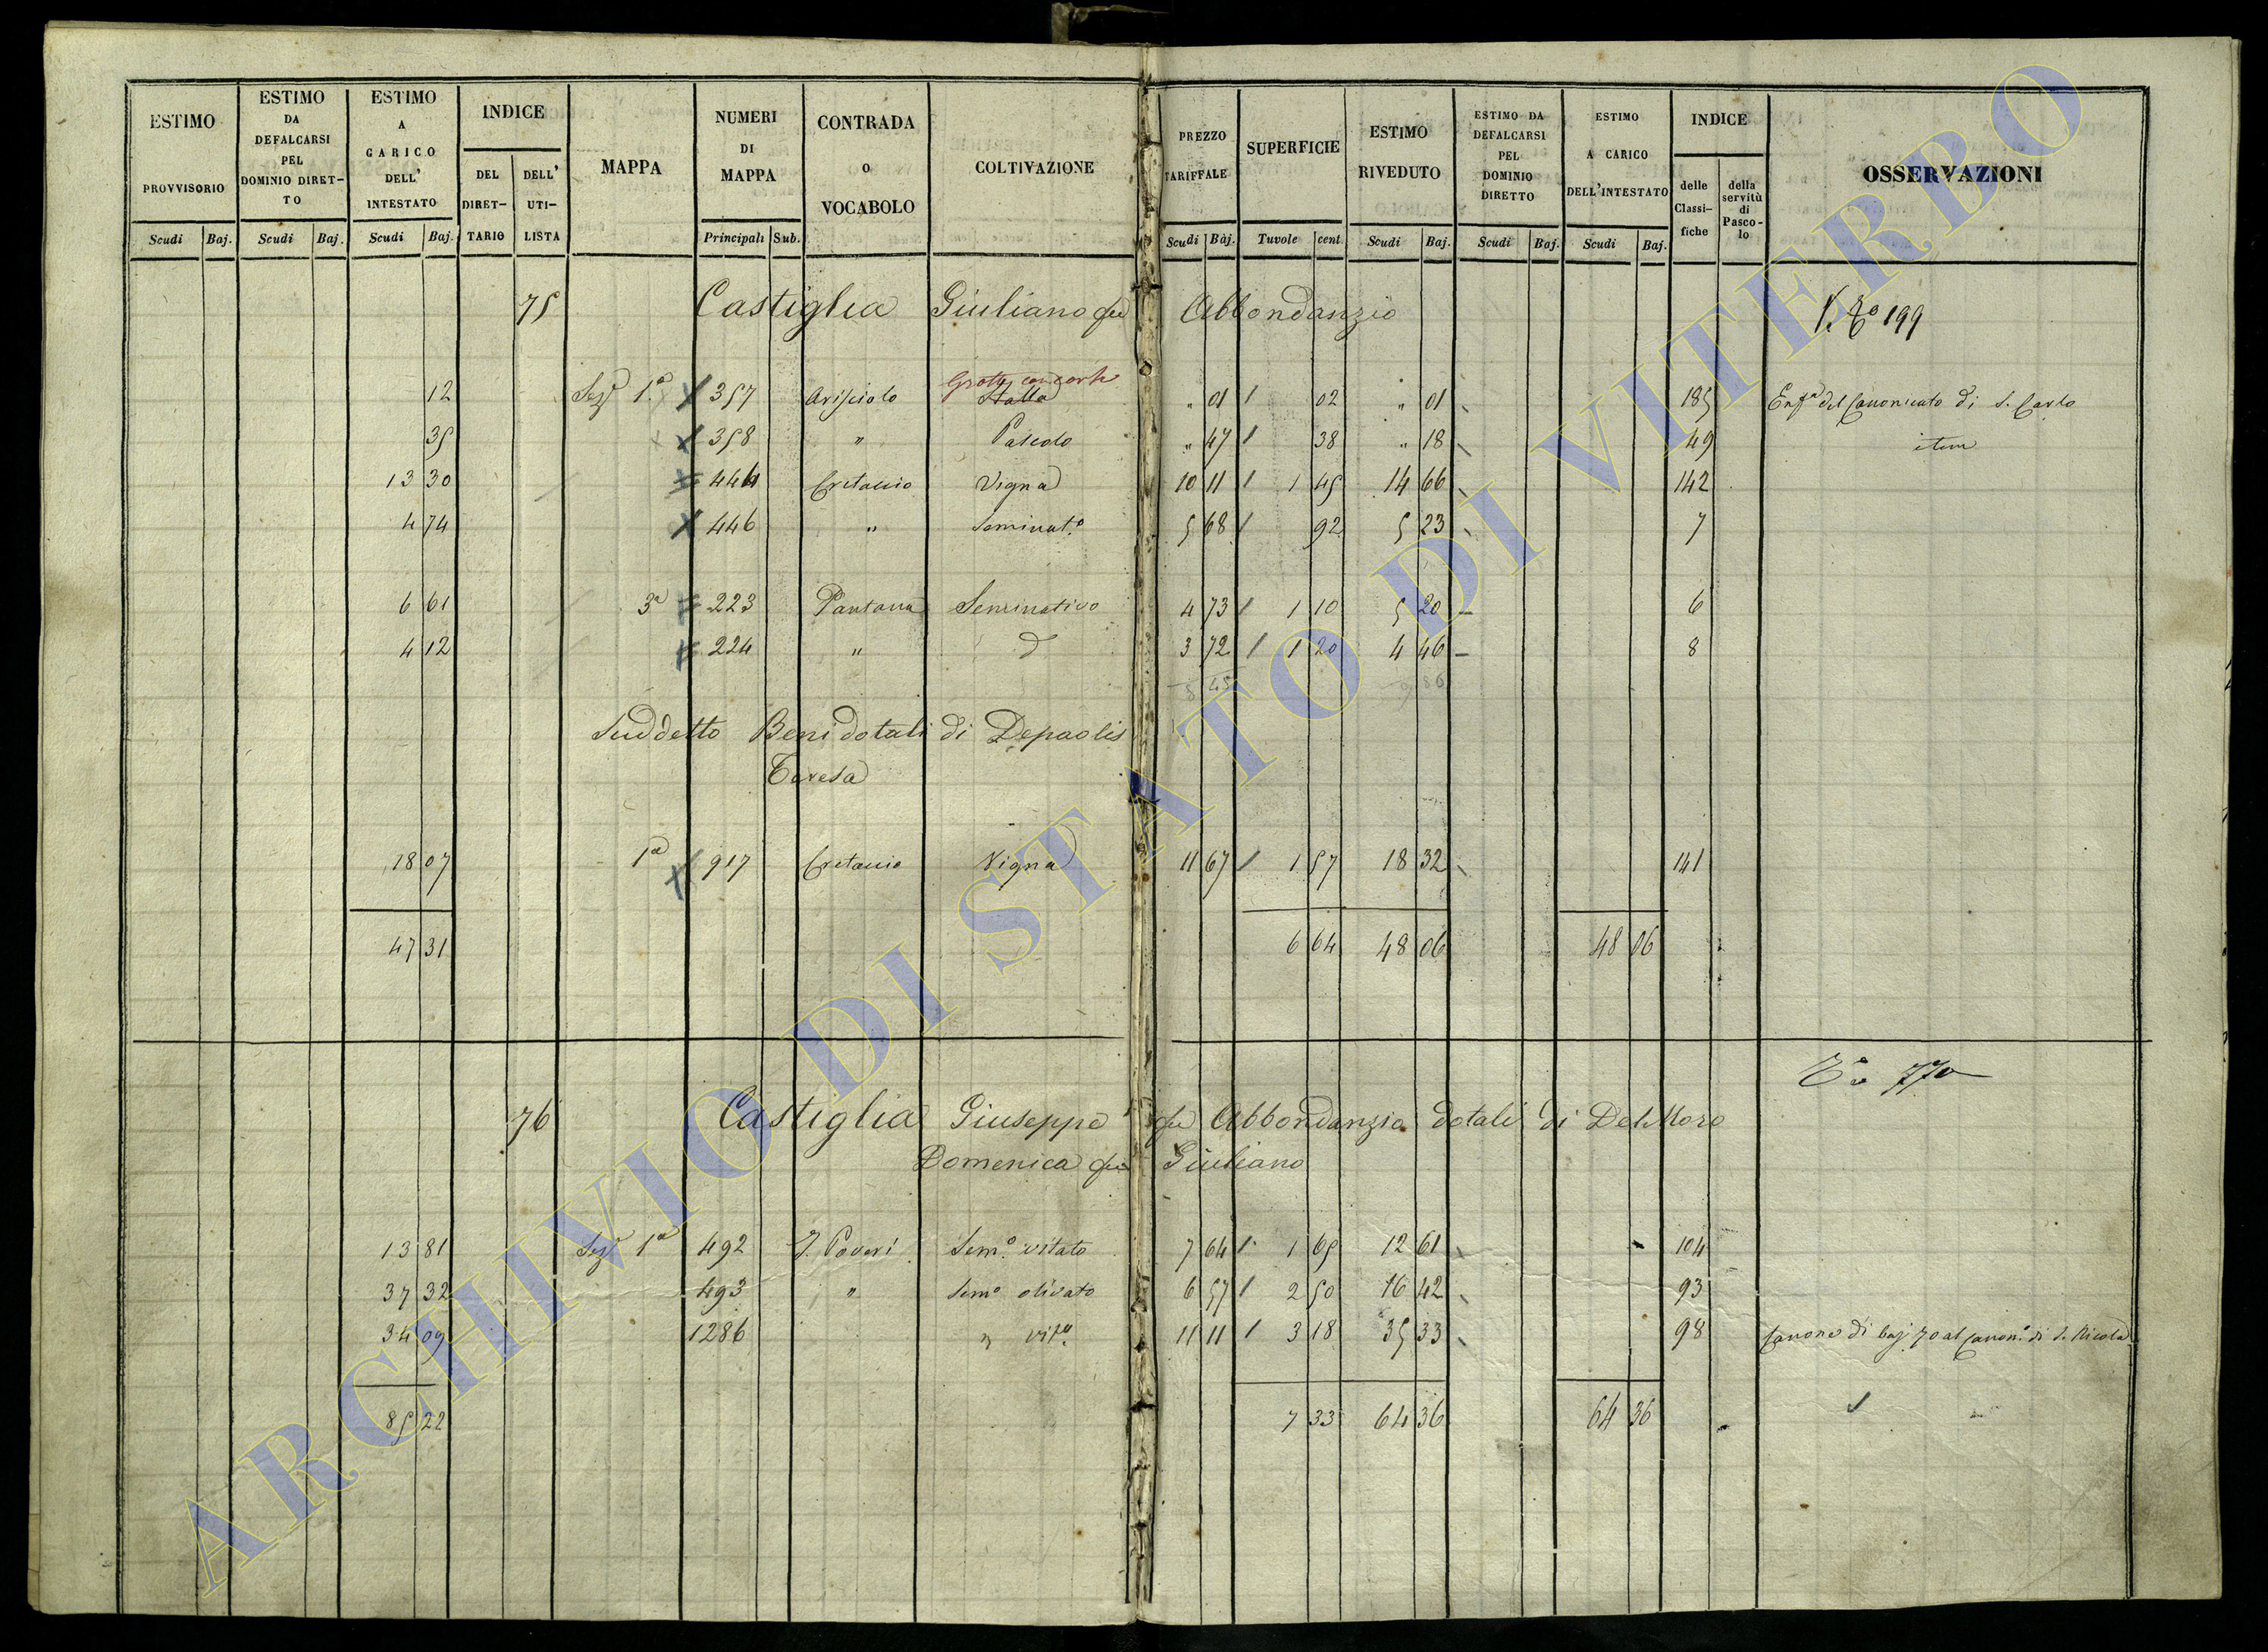 ESTIMO PROVVISORIO Scudi Baj.
ESTIMO DA DEFALCARSI PEL DOMINIO DIRETTO Scudi Baj.
ESTIMO A GARICO DELL' INTESTATO Scudi Baj.
INDICE DEL DIRETTARIO DELL' UTILISTA
MAPPA
NUMERI DI MAPPA Principali Sub.
CONTRADA o VOCABOLO
COLTIVAZIONE
PREZZO TARIFFALE Scudi Baj.
SUPERFICIE Tuvole cent
ESTIMO RIVEDUTO Scudi Baj.
ESTIMO DA DEFALCARSI PEL DOMINIO DIRETTO Scudi Baj.
ESTIMO A CARICO DELL'INTESTATO Scudi Baj.
INDICE delle Classifiche della servitù di Pascolo
OSSERVAZIONI
75 Castiglia Giuliano fu Abbondanzio 199
Grotta con corte
12 Sez.e 1.a 357 Arisciolo Stalla " 01 02 " 01 185 Enf.a del Canonicato di S. Carlo
35 358 " Pascolo " 47 38 " 18 49 item
13 30 444 Cretaccio Vigna 10 11 1 45 14 66 142
4 74 446 " Seminat.o 5 68 92 5 23 7
6 61 3a 223 Pantana Seminativo 4 73 1 10 5 20 6
4 12 224 " d 3 72 1 20 4 46 8
8 45 9 86
Suddetto Beni dotali di Depaolis
Teresa
18 07 1a 917 Cretaccio Vigna 11 67 1 57 18 32 141
47 31 6 64 48 06 48 06
770
76 Castiglia Giuseppe fu Abbondanzio dotali di Del Moro
Domenica fu Giuliano
13 81 Sez.e 1a 492 I. Poveri Sem.o vitato 7 64 1 65 12 61 104
37 32 493 " Sem.o olivato 6 57 2 50 16 42 93
34 09 1286 " vit.o 11 11 3 18 35 33 98 Canone di baj 70 al Canon.o di S. Nicola
85 22 7 33 64 36 64 36
ARCHIVIO DI STATO DI VITERBO